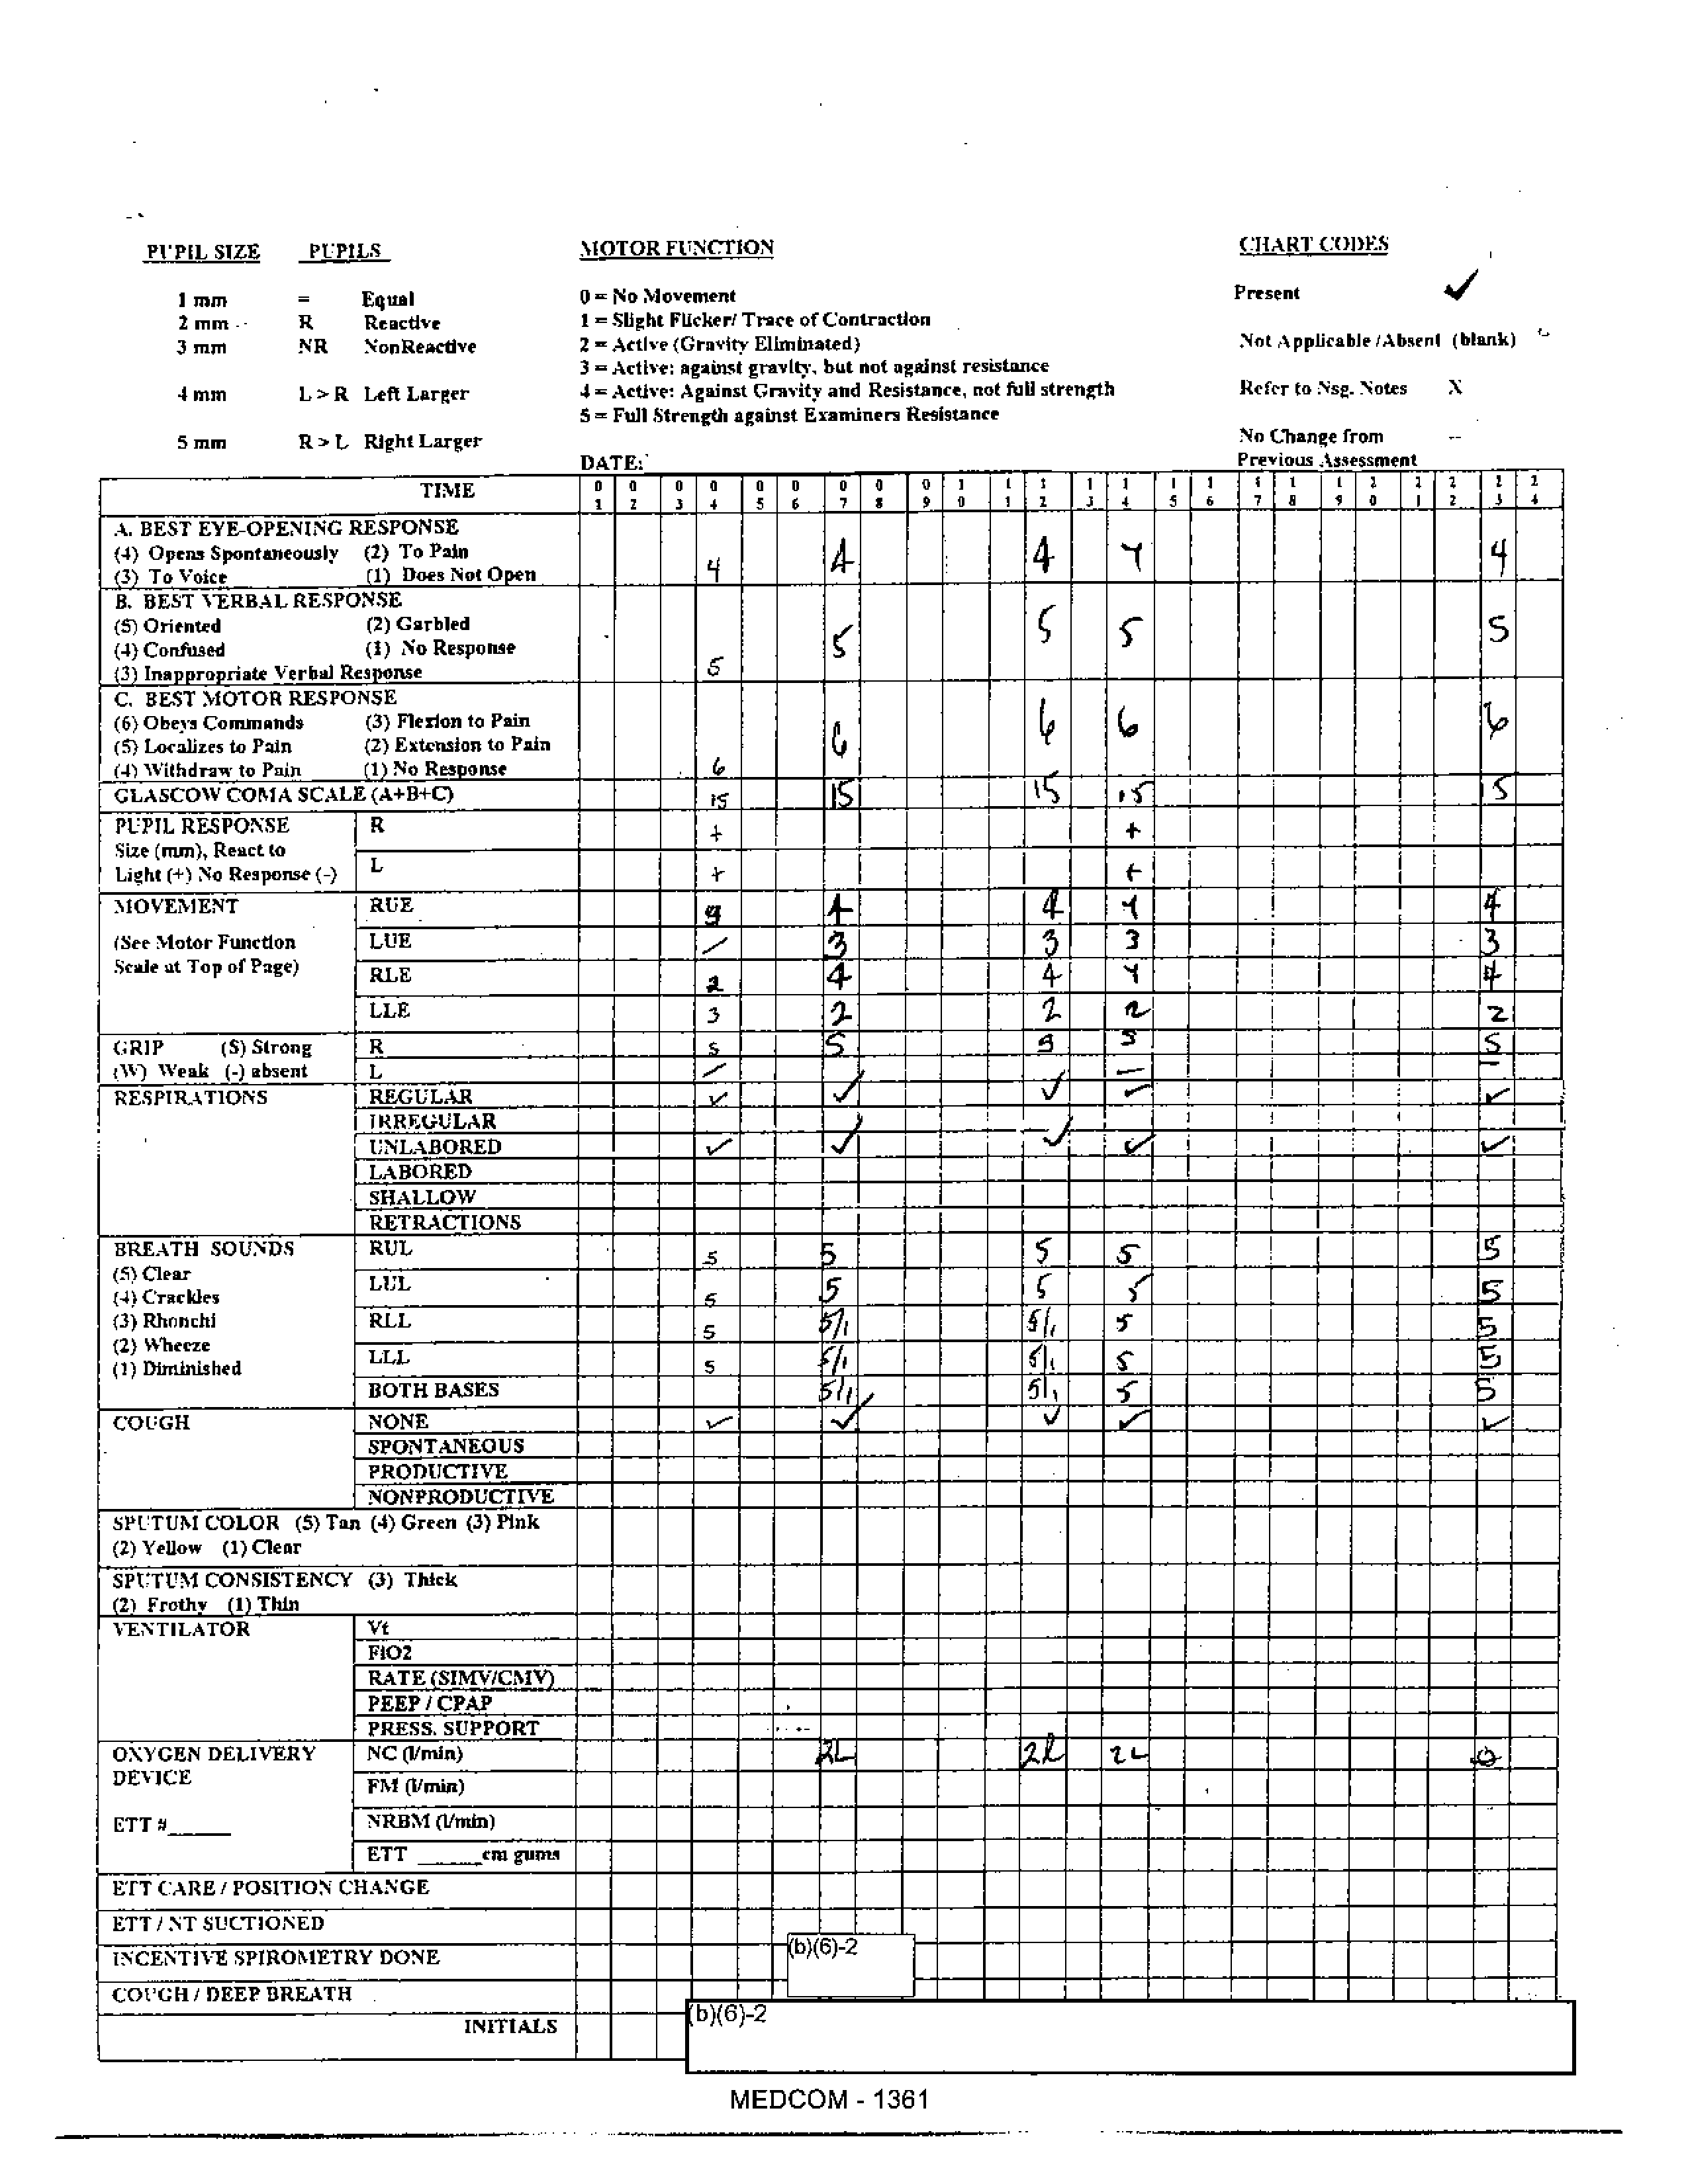 PUPIL SIZE PUPILS MOTOR FUNCTION CHART CODES
1 mm = Equal 0 = No Movement Present ✓
2 mm R Reactive 1 = Slight Flicker/ Trace of Contraction
3 mm NR NonReactive 2 = Active (Gravity Eliminated) Not Applicable /Absent (blank)
3 = Active: against gravity, but not against resistance
4 mm L > R Left Larger 4 = Active: Against Gravity and Resistance, not full strength Refer to Nsg. Notes X
5 = Full Strength against Examiners Resistance
5 mm R > L Right Larger No Change from --
DATE: Previous Assessment
TIME 01 02 03 04 05 06 07 08 09 10 11 12 13 14 15 16 17 18 19 20 21 22 23 24
A. BEST EYE-OPENING RESPONSE
(4) Opens Spontaneously (2) To Pain 4 4 4 4
(3) To Voice (1) Does Not Open 4
B. BEST VERBAL RESPONSE
(5) Oriented (2) Garbled 5 5 5 5
(4) Confused (1) No Response
(3) Inappropriate Verbal Response 5
C. BEST MOTOR RESPONSE
(6) Obeys Commands (3) Flexion to Pain 6 6 6 6
(5) Localizes to Pain (2) Extension to Pain
(4) Withdraw to Pain (1) No Response 6
GLASCOW COMA SCALE (A+B+C) 15 15 15 15 15
PUPIL RESPONSE R + +
Size (mm), React to
Light (+) No Response (-) L + +
MOVEMENT RUE 4 4 4 4
(See Motor Function LUE / 3 3 3 3
Scale at Top of Page) RLE 2 4 4 4 4
LLE 3 2 2 2 2
GRIP (S) Strong R S S S S S
(W) Weak (-) absent L - - -
RESPIRATIONS REGULAR ✓ ✓ ✓ ✓ ✓
IRREGULAR
UNLABORED ✓ ✓ ✓ ✓ ✓
LABORED
SHALLOW
RETRACTIONS
BREATH SOUNDS RUL 5 5 5 5 5
(5) Clear
(4) Crackles LUL 5 5 5 5 5
(3) Rhonchi RLL 5 5/1 5/1 5 5
(2) Wheeze
(1) Diminished LLL 5 5/1 5/1 5 5
BOTH BASES 5/1 5/1 5 5
COUGH NONE ✓ ✓ ✓ ✓ ✓
SPONTANEOUS
PRODUCTIVE
NONPRODUCTIVE
SPUTUM COLOR (5) Tan (4) Green (3) Pink
(2) Yellow (1) Clear
SPUTUM CONSISTENCY (3) Thick
(2) Frothy (1) Thin
VENTILATOR Vt
FIO2
RATE (SIMV/CMV)
PEEP / CPAP
PRESS. SUPPORT
OXYGEN DELIVERY NC (l/min) 2L 2L 2L 0
DEVICE FM (l/min)
ETT #_____ NRBM (l/min)
ETT _____cm gums
ETT CARE / POSITION CHANGE
ETT / NT SUCTIONED
INCENTIVE SPIROMETRY DONE (b)(6)-2
COUGH / DEEP BREATH
INITIALS (b)(6)-2
MEDCOM - 1361